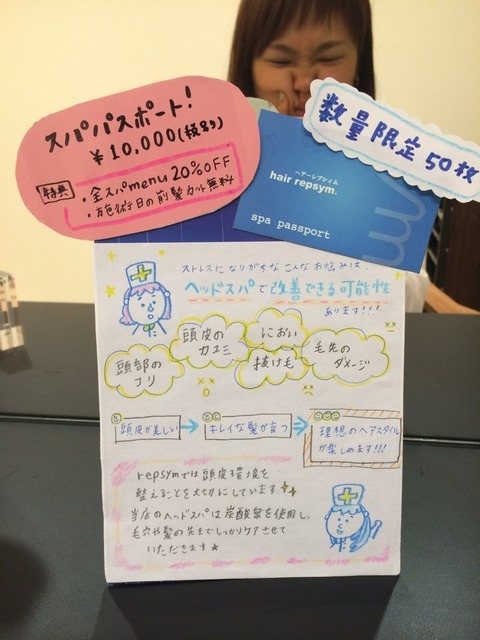 スパパスポート!
¥10,000(税別)
特典
・全スパmenu 20%OFF
・施術日の前髪カット無料
数量限定50枚
ヘアーレプシィム
hair repsym.
spa passport
ストレスになりがちなこんなお悩みは、
ヘッドスパで改善できる可能性
あります!!!
頭部の
コリ
頭皮の
カユミ
におい
抜け毛
毛先の
ダメージ
頭皮が美しい
キレイな髪が育つ
理想のヘアスタイル
が楽しめます!!!
repsymでは頭皮環境を
整えることを大切にしています
当店のヘッドスパは炭酸泉を使用し、
毛穴や髪の先までしっかりケアさせて
いただきます★